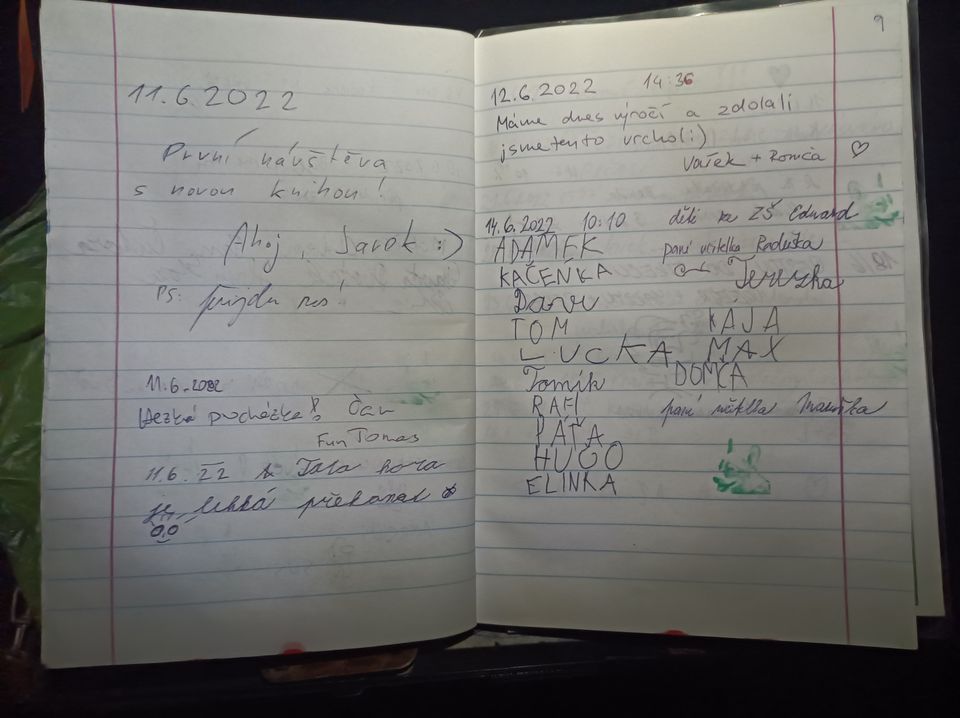 11.6.2022
První návštěva
s novou knihou!
Ahoj, Jarok :)
PS: přijdu zas!
11.6.2022
Hezká procházka! Čau
Fun Tomas
11.6.22 Tata hora
je lehká překonat
9
12.6.2022 14:36
Máme dnes výročí a zdolali
jsme tento vrchol :)
Vašek + Romča ♡
14.6.2022 10:10 děti ze ZŠ Edward
ADÁMEK paní učitelka Raduška
KAČENKA Terezka
TOM KÁJA
LUCKA MAX
Tomík DOMČA
RAFI paní učitelka Hanička
PÁŤA
HUGO
ELINKA